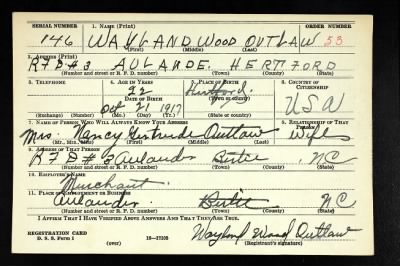 SERIAL NUMBER 1. NAME (Print) ORDER NUMBER
146 WAYLAND WOOD OUTLAW 53
(First) (Middle) (Last)
2. ADDRESS (Print)
RFD #3 AULANDE. HERTFORD
(Number and street or R. F. D. number) (Town) (County) (State)
3. TELEPHONE 4. AGE IN YEARS 5. PLACE OF BIRTH 6. COUNTRY OF CITIZENSHIP
22 Hertford
DATE OF BIRTH (Town or county)
Oct 21 1917 USA
(Exchange) (Number) (Mo.) (Day) (Yr.) (State or country)
7. NAME OF PERSON WHO WILL ALWAYS KNOW YOUR ADDRESS 8. RELATIONSHIP OF THAT PERSON
Mrs. Nancy Gertrude Outlaw wife
(Mr., Mrs., Miss) (First) (Middle) (Last)
9. ADDRESS OF THAT PERSON
RFD #3 Aulander Bertie NC
(Number and street or R. F. D. number) (Town) (County) (State)
10. EMPLOYER'S NAME
Merchant
11. PLACE OF EMPLOYMENT OR BUSINESS
Aulander Bertie NC
(Number and street or R. F. D. number) (Town) (County) (State)
I AFFIRM THAT I HAVE VERIFIED ABOVE ANSWERS AND THAT THEY ARE TRUE.
REGISTRATION CARD
D. S. S. Form 1 (over) 16—17105 Wayland Wood Outlaw
(Registrant's signature)